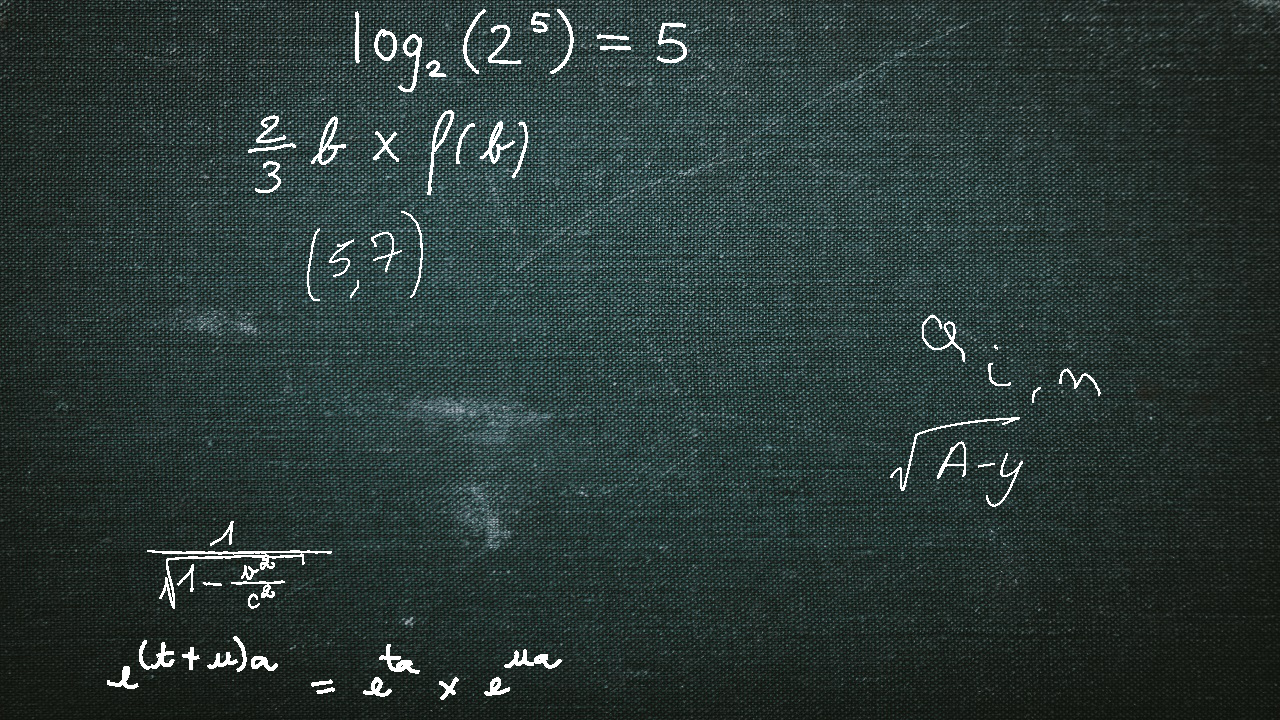 log₂(2⁵) = 5
\frac{2}{3} b × f(b)
(5,7)
Q_{i,n}
\sqrt{A-y}
\frac{1}{\sqrt{1-\frac{v^2}{c^2}}}
e^{(t+u)a} = e^{ta} × e^{ua}